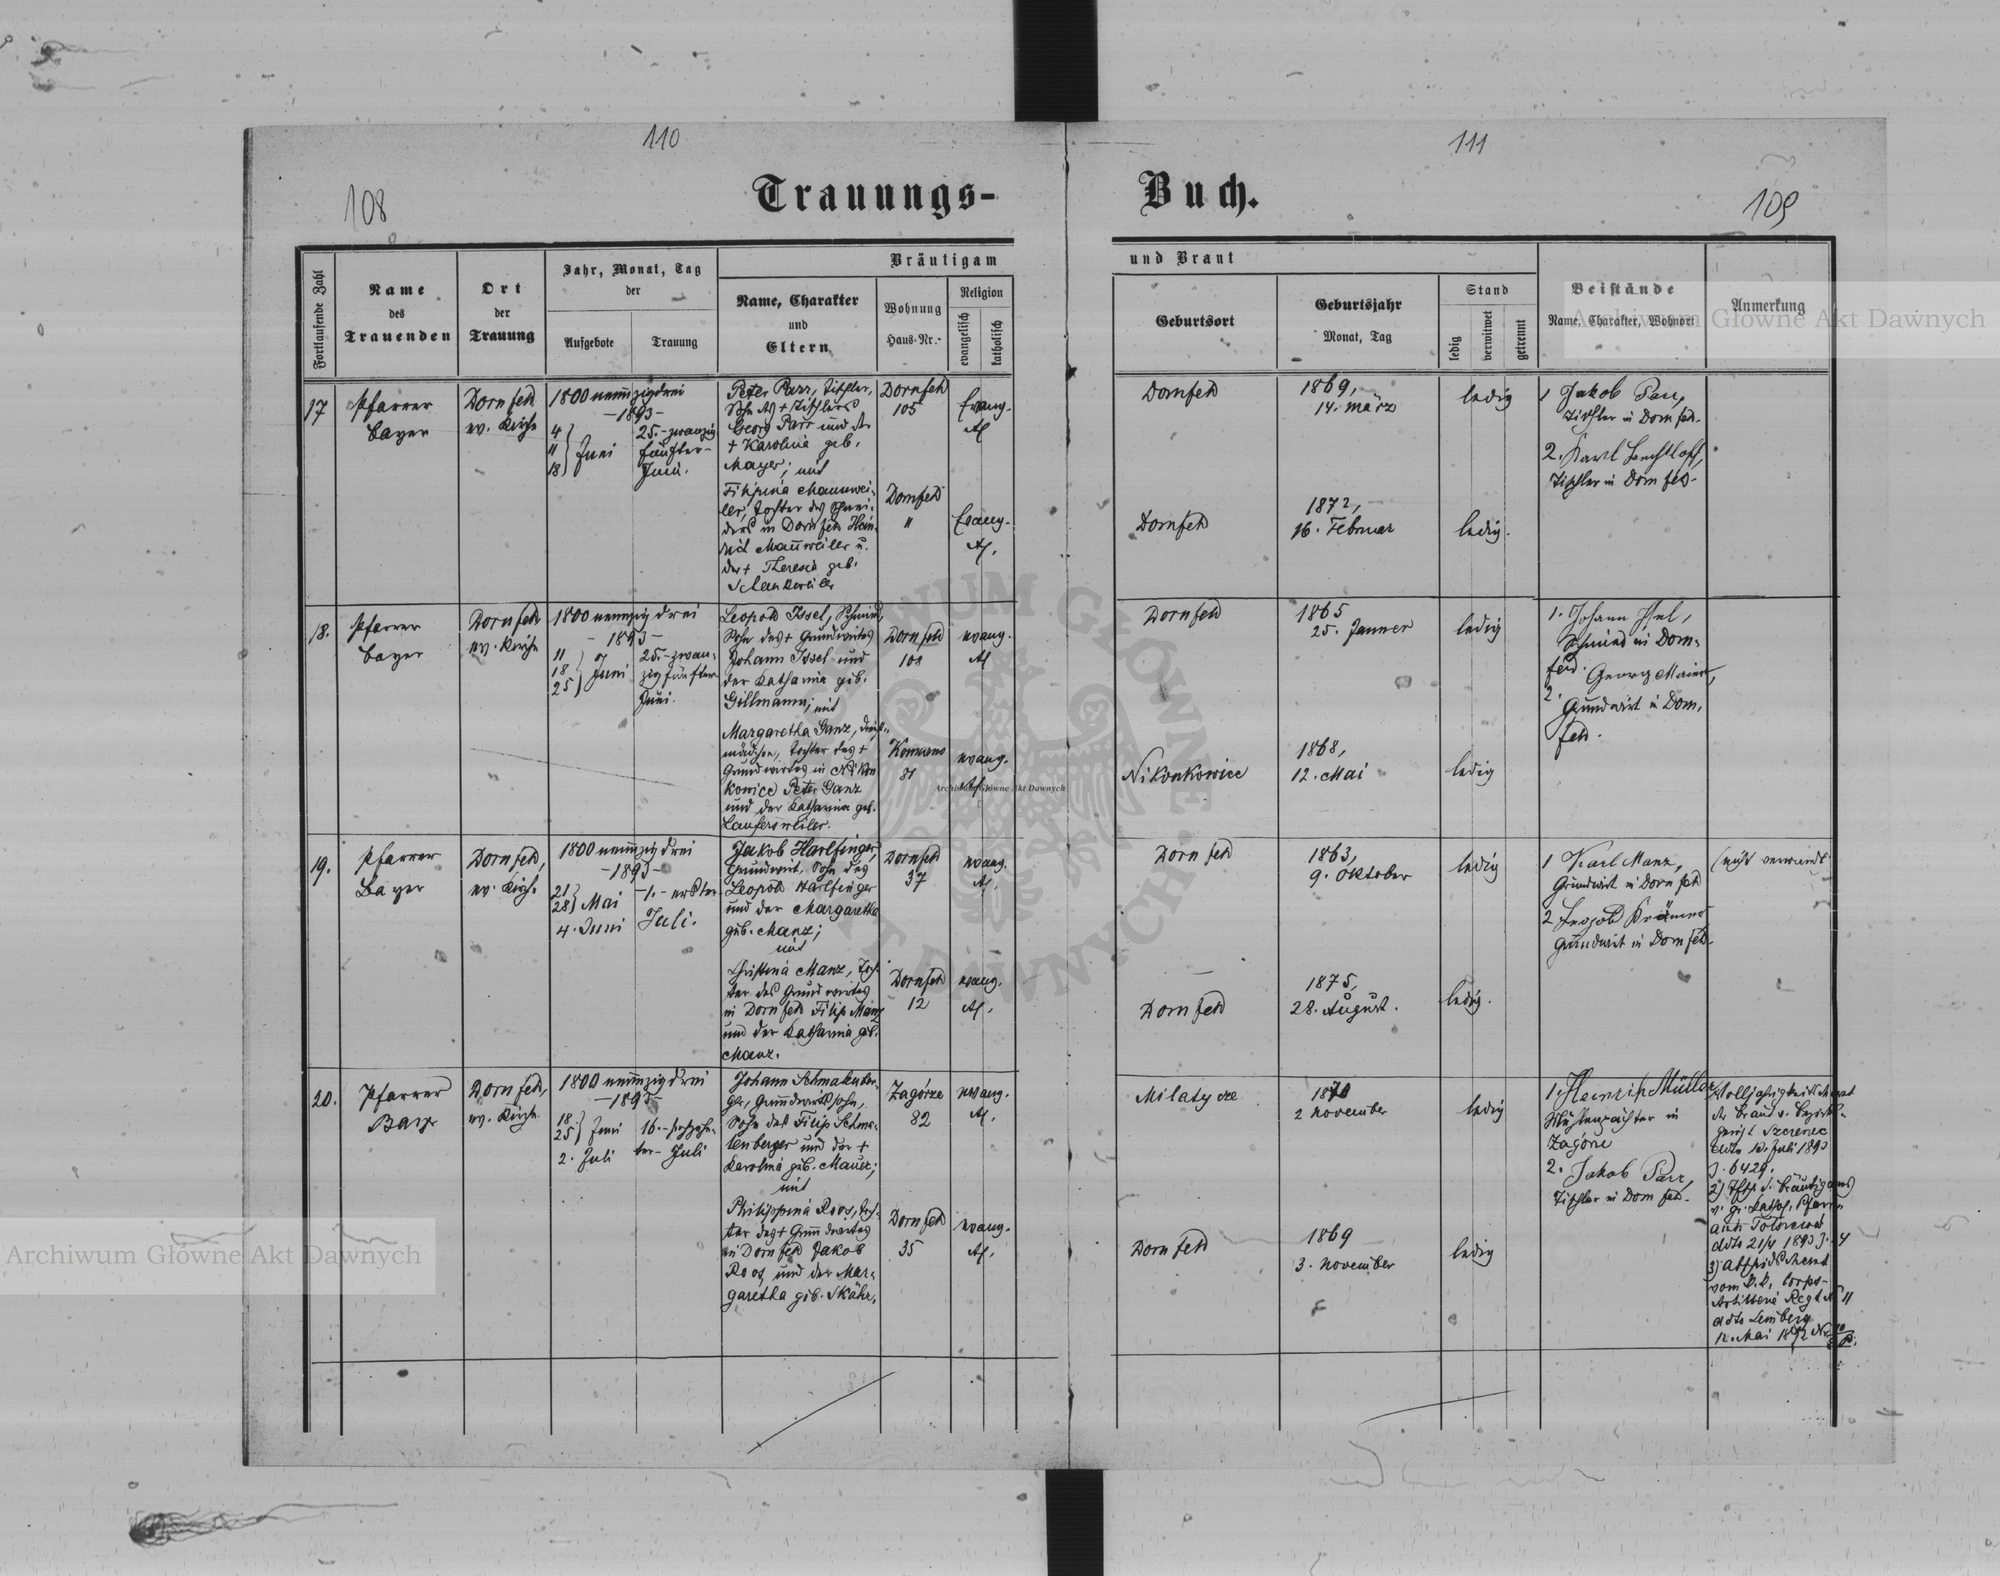 110
111
108
109
Trauungs-
Buch.
Fortlaufende Zahl
Name
des
Trauenden
Ort
der
Trauung
Jahr, Monat, Tag
der
Aufgebote
Trauung
Bräutigam
Name, Charakter
und
Eltern
Wohnung
Haus-Nr.
Religion
evangelisch
katholisch
und Braut
Geburtsort
Geburtsjahr
Monat, Tag
Stand
ledig
verwitwet
getrennt
Beistände
Name, Charakter, Wohnort
Anmerkung
17
Pfarrer
Bayer
Dornfeld
ev. Kirche
1800 neunzigdrei
-1893-
4
11
18
Juni
25.-zwanzig
fünfter-
Juni.
Peter Parr, Tischler,
Sohn des + Tischlers
Georg Parr und der
+ Karolina geb.
Mayer; mit
Filipina Mannwei-
ler, Tochter des Schnei-
ders in Dornfeld Hein-
rich Mannweiler u.
der + Theresia geb.
Schankweiler
Dornfeld
105
Evang.
AC
Dornfeld
"
Evang.
AC.
Dornfeld
1869,
14. März
ledig
Dornfeld
1872,
16. Februar
ledig.
1 Jakob Parr,
Tischler in Dornfeld.
2. Karl Bechtloff,
Tischler in Dornfeld.
18.
Pfarrer
Bayer
Dornfeld
ev. Kirche
1800 neunzigdrei
-1893-
11
18
25
Juni
25.-zwan-
zigfünfter
Juni.
Leopold Issel, Schmied,
Sohn des + Grundwirtes
Johann Issel und
der Katharina geb.
Gillmann; mit
Margaretha Ganz, Dienst-
mädchen, Tochter des +
Grundwirtes in Nikon
kowice Peter Ganz
und der Katharina geb.
Laufersweiler.
Dornfeld
108
evang.
AC
Komarno
81
evang.
AC.
Dornfeld
1865
25. Jänner
ledig
Nikonkowice
1868,
12. Mai
ledig
1. Johann Issel,
Schmied in Dorn-
feld.
2. Georg Maier,
Grundwirt in Dorn-
feld.
19.
Pfarrer
Bayer
Dornfeld,
ev. Kirche
1800 neunzigdrei
-1893-
21
28 Mai
4. Juni
-1.- erster
Juli.
Jakob Harlfinger,
Grundwirt, Sohn des
Leopold Harlfinger
und der Margaretha
geb. Manz;
mit
Christina Manz, Toch-
ter des Grundwirtes
in Dornfeld Filip Manz
und der Katharina geb.
Manz.
Dornfeld
37
evang.
AC.
Dornfeld
12
evang.
AC.
Dornfeld
1863,
9. Oktober
ledig
Dornfeld
1875,
28. August.
ledig.
1 Karl Manz,
Grundwirt in Dornfeld
2 Leopold Krämer
Grundwirt in Dornfeld.
(nicht verwandt
20.
Pfarrer
Bayer
Dornfeld,
ev. Kirche
1800 neunzigdrei
-1893-
18.
25 Juni
2. Juli
16.-sechzehn-
ter- Juli
Johann Schmalenber-
ger, Grundwirtssohn,
Sohn des Filip Schma-
lenberger und der +
Karolina geb. Mauer;
mit
Philippina Roos, Toch-
ter des + Grundwirtes
in Dornfeld Jakob
Roos und der Mar-
garetha geb. Skähr.
Zagórze
82
evang.
AC.
Dornfeld
35
evang.
AC.
Milatycze
1870
2 November
ledig
Dornfeld
1869
3. November
ledig
1. Heinrich Müller
Mühlenpächter in
Zagórze
2. Jakob Parr,
Tischler in Dornfeld.
der Braut v. Bezirks-
gericht Szczerzec
ddto 12. Juli 1893
Z. 6429.
2) d. Bräutigams
v. gr. kathol. Pfarr-
amt
ddto 21/4 1893 Z. 4
3)
vom k.k. Corps-
Artillerie Regt. No 11
ddto Lemberg
12. Mai 1892
Archiwum Główne Akt Dawnych
Archiwum Główne Akt Dawnych
Archiwum Główne Akt Dawnych